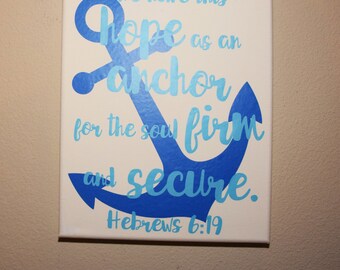 We have this
hope as an
anchor
for the soul firm
and secure.
Hebrews 6:19